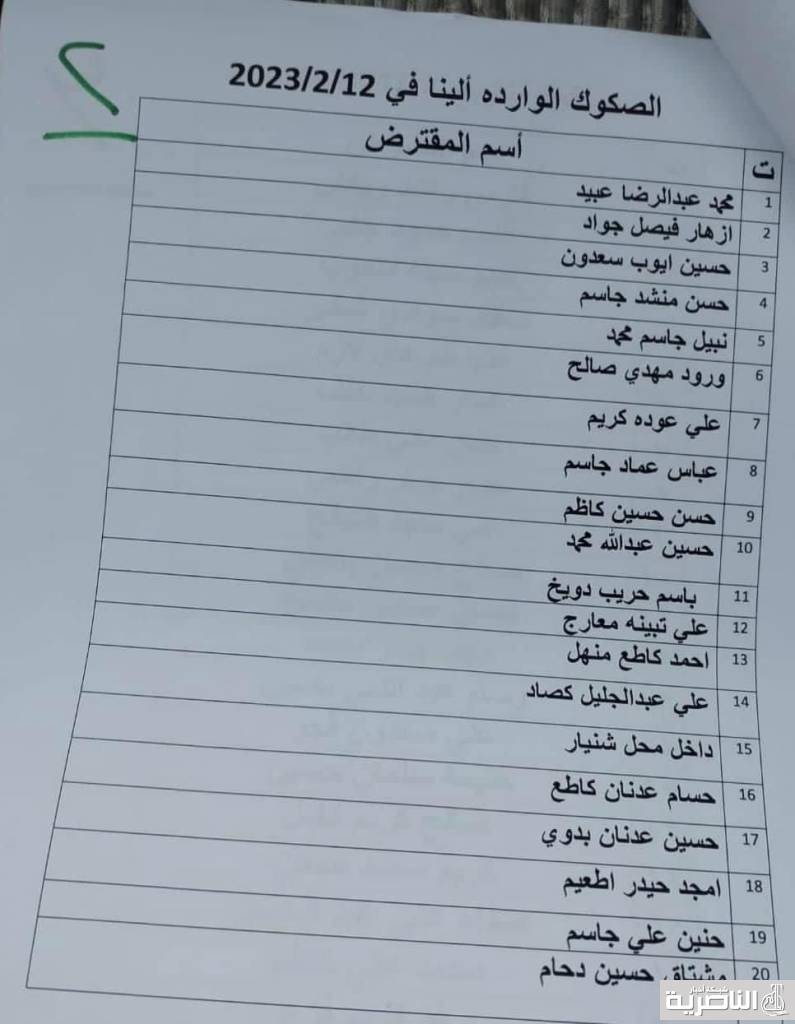 ٢
الصكوك الوارده ألينا في 2023/2/12
ت أسم المقترض
1 محمد عبدالرضا عبيد
2 ازهار فيصل جواد
3 حسين ايوب سعدون
4 حسن منشد جاسم
5 نبيل جاسم محمد
6 ورود مهدي صالح
7 علي عوده كريم
8 عباس عماد جاسم
9 حسن حسين كاظم
10 حسين عبدالله محمد
11 باسم حريب دويخ
12 علي تبينه معارج
13 احمد كاطع منهل
14 علي عبدالجليل كصاد
15 داخل محل شنيار
16 حسام عدنان كاطع
17 حسين عدنان بدوي
18 امجد حيدر اطعيم
19 حنين علي جاسم
20 مشتاق حسين دحام
شبكة أخبار
الناصرية